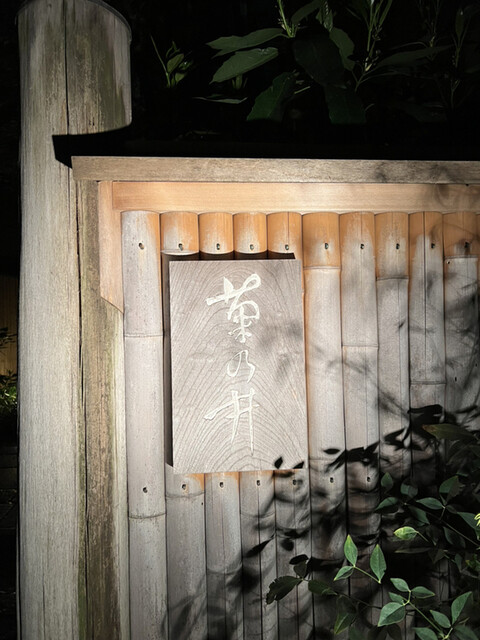 菊乃井